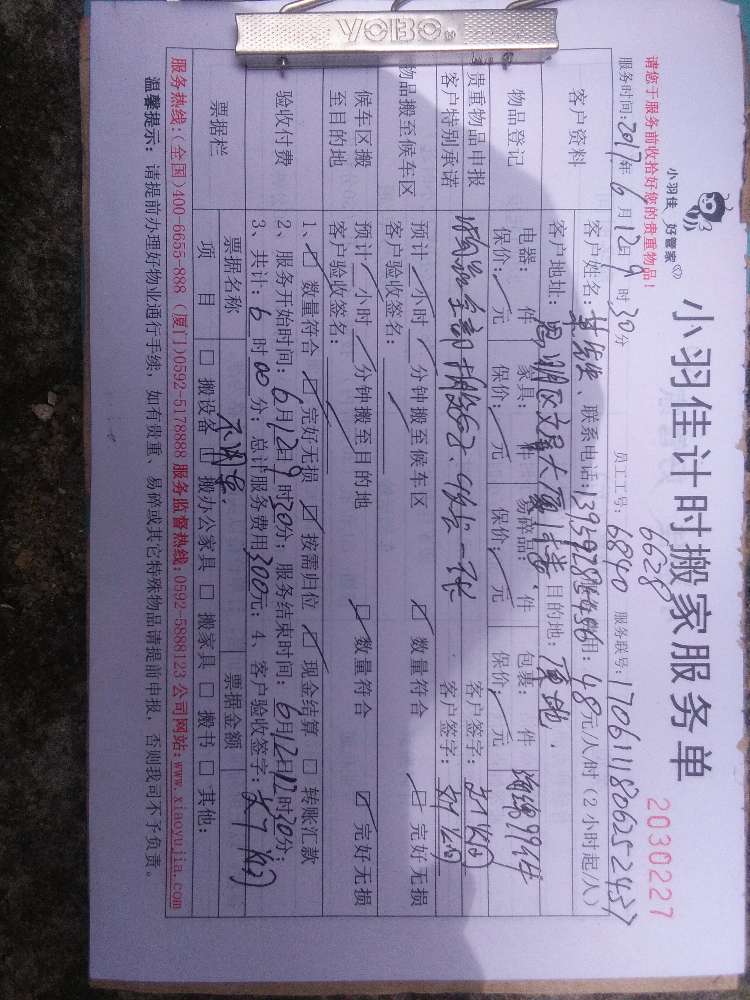 YOBO
小羽佳 好管家
小羽佳计时搬家服务单
2030227
请您于服务前收拾好您的贵重物品!
6628
服务时间:2017年6月12日9时30分 员工工号:6840 服务联号:
客户资料
客户姓名: 、联系电话: 费用:48元/人/时(2小时起/人)
客户地址:思明区文 大厦 目的地:原地.
物品登记
电器: 件 家具: 件 易碎品: 件 包裹: 件
保价: 元 保价: 元 保价: 元 保价: 元
贵重物品申报
客户签字:
客户特别承诺
客户签字:
物品搬至候车区
预计 小时 分钟搬至候车区 ☑ 数量符合 ☑ 完好无损
客户验收签名:
候车区搬至目的地
预计 小时 分钟搬至目的地 ☑ 数量符合 ☑ 完好无损
客户验收签名:
验收付费
1、☑ 数量符合 ☑ 完好无损 ☑ 按需归位 ☑ 现金结算 □ 转账汇款
2、服务开始时间:6月12日9时30分;服务结束时间:6月12日12时30分;
3、共计:6时00分;总计服务费用300元;4、客户验收签字:
票据栏
票据名称 不用单. 票据金额
项目 □ 搬设备 □ 搬办公家具 □ 搬家具 □ 搬书 □ 其他:
服务热线:(全国)400-6655-888 (厦门)0592-5178888 服务监督热线:0592-5888123 公司网站:www.xiaoyujia.com
温馨提示:请提前办理好物业通行手续,如有贵重、易碎或其它特殊物品请提前申报,否则我司不予负责。